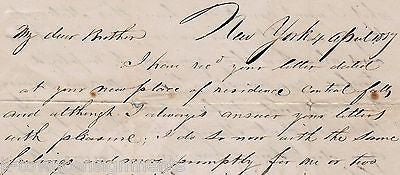 New York 4 April 1847
My dear Brother
I have rec.d your letter dated
at your new place of residence Central falls
and although I always answer your letters
with pleasure; I do so now with the same
feelings and more promptly for one or two